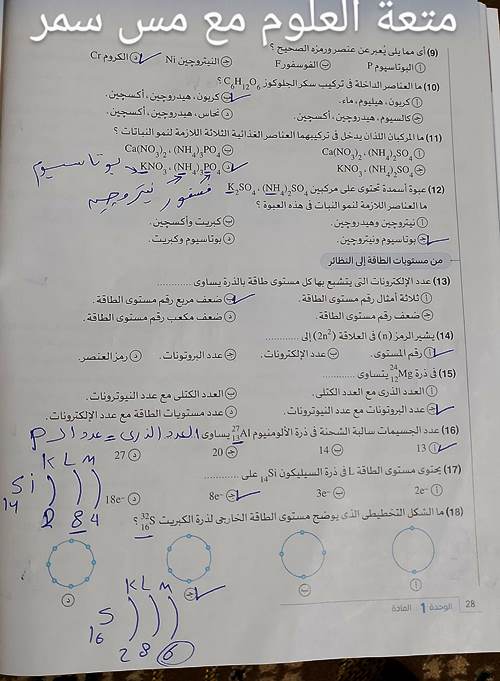 متعة العلوم مع مس سمر
(9) أى مما يلى يُعبر عن عنصر ورمزه الصحيح ؟
أ البوتاسيوم P ب الفوسفور F جـ النيتروچين Ni د الكروم Cr
(10) ما العناصر الداخلة فى تركيب سكر الجلوكوز C6H12O6 ؟
أ كربون، هيليوم، ماء. ب كربون، هيدروچين، أكسچين.
جـ كالسيوم، هيدروچين، أكسچين. د نحاس، هيدروچين، أكسچين.
(11) ما المركبان اللذان يدخل فى تركيبهما العناصر الغذائية الثلاثة اللازمة لنمو النباتات ؟
أ Ca(NO3)2 ، (NH4)2SO4 ب Ca(NO3)2 ، (NH4)3PO4
جـ KNO3 ، (NH4)2SO4 د KNO3 ، (NH4)3PO4
بوتاسيوم
فسفور نيتروجين
(12) عبوة أسمدة تحتوى على مركبين K2SO4 ، (NH4)2SO4
ما العناصر اللازمة لنمو النبات فى هذه العبوة ؟
أ نيتروچين وهيدروچين. ب كبريت وأكسچين.
جـ بوتاسيوم ونيتروچين. د بوتاسيوم وكبريت.
من مستويات الطاقة إلى النظائر
(13) عدد الإلكترونات التى يتشبع بها كل مستوى طاقة بالذرة يساوى ............
أ ثلاثة أمثال رقم مستوى الطاقة. ب ضعف مربع رقم مستوى الطاقة.
جـ ضعف رقم مستوى الطاقة. د ضعف مكعب رقم مستوى الطاقة.
(14) يشير الرمز (n) فى العلاقة (2n²) إلى ............
أ رقم المستوى. ب عدد الإلكترونات. جـ عدد البروتونات. د رمز العنصر.
(15) فى ذرة 24 12 Mg يتساوى ............
أ العدد الذرى مع العدد الكتلى. ب العدد الكتلى مع عدد النيوترونات.
جـ عدد البروتونات مع عدد النيوترونات. د عدد مستويات الطاقة مع عدد الإلكترونات.
(16) عدد الجسيمات سالبة الشحنة فى ذرة الألومنيوم 27 13 Al يساوى العدد الذرى = عدد الـ P
أ 13 ب 14 جـ 20 د 27
(17) يحتوى مستوى الطاقة L فى ذرة السيليكون 14Si على ............
أ 2e⁻ ب 3e⁻ جـ 8e⁻ د 18e⁻
K L M
Si
14
2 8 4
(18) ما الشكل التخطيطى الذى يوضح مستوى الطاقة الخارجى لذرة الكبريت 32 16 S ؟
أ ب جـ د
K L M
S
16
2 8 6
28 الوحدة 1 المادة